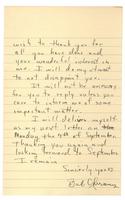 wish to thank you for
all you have done and
your wonderful interest in
me. I will do my utmost
to not disappoint you.
It will not be necessary
for you to reply unless you
care to inform me of some
important matter.
I will deliver myself
as my guest letter on
Monday the 4th of September.
Thanking you again and
looking forward to September
I remain,
Sincerely yours
Bob